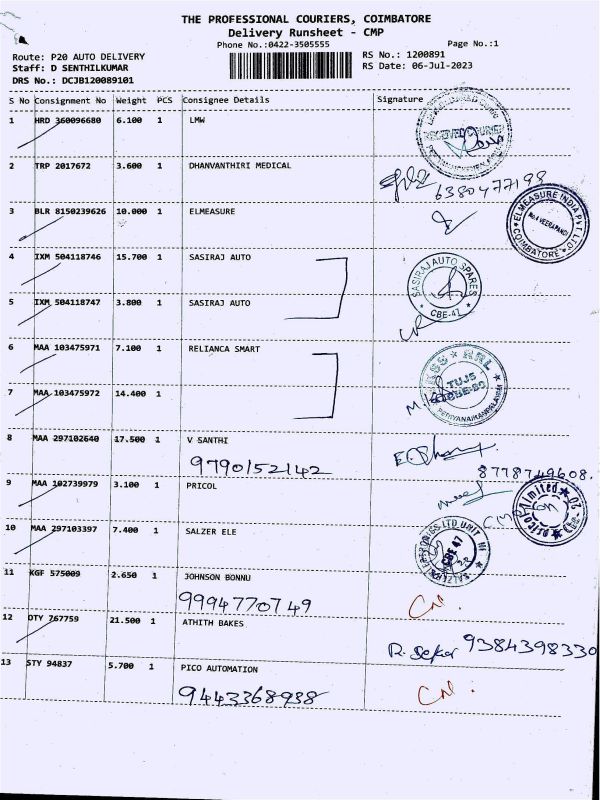 THE PROFESSIONAL COURIERS, COIMBATORE
Delivery Runsheet - CMP
Phone No.:0422-3505555 Page No.:1
Route: P20 AUTO DELIVERY RS No.: 1200891
Staff: D SENTHILKUMAR RS Date: 06-Jul-2023
DRS No.: DCJB120089101
S No Consignment No Weight PCS Consignee Details Signature
1 HRD 360096680 6.100 1 LMW
2 TRP 2017672 3.600 1 DHANVANTHIRI MEDICAL
6380477198
3 BLR 8150239626 10.000 1 ELMEASURE
ELMEASURE INDIA PVT LTD
COIMBATORE
4 IXM 504118746 15.700 1 SASIRAJ AUTO
SASIRAJ AUTO SPARES
CBE-47
5 IXM 504118747 3.800 1 SASIRAJ AUTO
6 MAA 103475971 7.100 1 RELIANCA SMART
RRL
TUJ5
PERIYANAIKANPALAYAM
7 MAA 103475972 14.400 1
8 MAA 297102640 17.500 1 V SANTHI
9790152142
8778749608.
9 MAA 102739979 3.100 1 PRICOL
10 MAA 297103397 7.400 1 SALZER ELE
CBE 47
11 KGF 575009 2.650 1 JOHNSON BONNU
9994770749
12 OTY 767759 21.500 1 ATHITH BAKES
R. Seker 9384398330
13 STY 94837 5.700 1 PICO AUTOMATION
9443368938